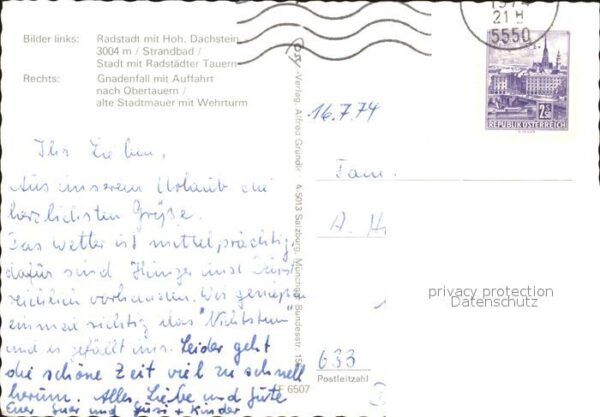 Bilder links: Radstadt mit Hoh. Dachstein
3004 m / Strandbad /
Stadt mit Radstädter Tauern
Rechts: Gnadenfall mit Auffahrt
nach Obertauern /
alte Stadtmauer mit Wehrturm
Ihr Lieben,
Aus unserem Urlaub die
herzlichsten Grüße.
Das Wetter ist mittelprächtig,
dafür sind Hunger und Durst
reichlich vorhanden. Wir genießen
einmal richtig das "Nichtstun"
und es gefällt uns. Leider geht
die schöne Zeit viel zu schnell
herum. Alles Liebe und Gute
Euer und + Kinder
-Verlag, Alfred Gründler, A-5013 Salzburg, Münchner Bundesstr.
6507
21 8
5550
2.50
REPUBLIK ÖSTERREICH
16.7.74
Fam.
A. H
privacy protection
Datenschutz
633
Postleitzahl